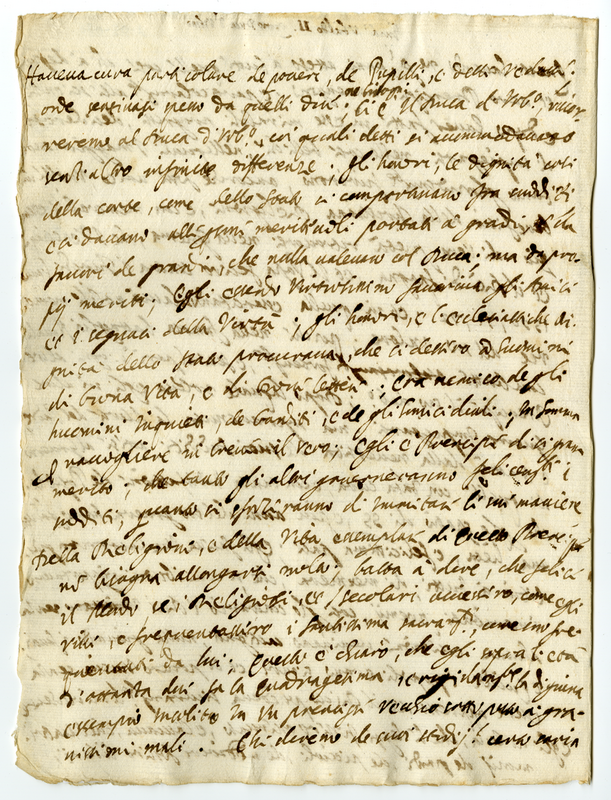 Haveva cura particolare de poveri, de Pupilli, e delle Vedove
onde sentivasi spesso da quelli dire; si è il Duca d'Urb.º, ricor-
reremo al Duca d'Urb.º, coi quali detti si accommodavano
senz'altro infinite differenze; gli honori, le dignità così
della corte, come dello stato si compartivano fra sudditi
e si davano alli più meritevoli portati à gradi,
favori de grandi, che nulla valevano col Duca; ma da pro-
pij meriti; Egli essendo Virtuosissimo favoriva gli Amici
et i seguaci della Virtù; gli honori, e l'ecclesiastiche di-
gnità dello stato procurava, che si dessero à huomini
di buona Vita, e di buone lettere; era nemico degli
huomini inquieti, de banditi, e de gli homicidiali; in somma
raccogliere in breve il vero; Egli è Principe di sì gran
merito, che tanto gli altri governeranno felicemente i
sudditi, quanto si sforzeranno di immitare le sue maniere
Della Religione, e della Vita esemplare di questo Prencipe
nò bisogna allongarsi molto; basta à dire, che felice
il Mondo se i Religiosi, et secolari vivessero, come egli
visse, e frequentassero i santissimi sacramenti, come
quentati da lui; Questo è chiaro, che egli sopra l'età
d'ottanta dui fa la quadragesima, e rigidamente la digiuna
essempio insolito in un Prencipe vecchio sottoposto à gra-
vissimi mali. Chi diremo de suoi studij?